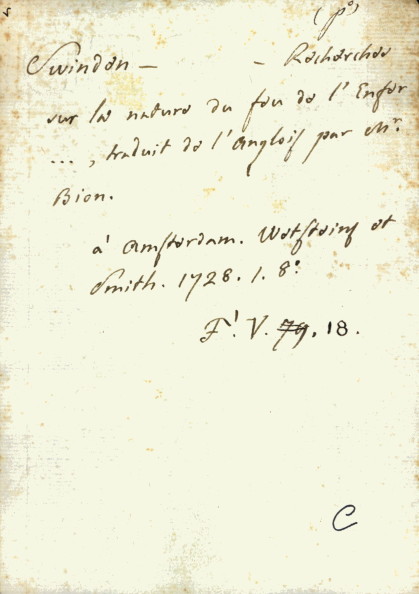 (po)
Swinden — — Recherches
sur la nature du feu de l'Enfer
..., traduit de l'Anglois par Mr.
Bion.
à Amsterdam. Wetsteins et
Smith. 1728. 1. 8o.
F'. V. 79. 18.
C